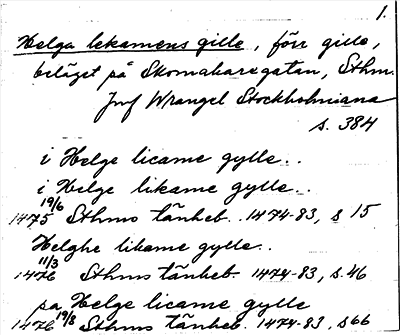 1.
Helga lekamens gille, förr gille,
beläget på Skomakaregatan, Sthm.
Jmf Wrangel Stockholmiana
s. 384
i Helge licame gylle..
i Helge likame gylle..
1475 19/6 Sthms tänkeb. 1474-83, s 15
Helghe likame gylle..
1476 11/3 Sthms tänkeb. 1474-83, s. 46
pa Helge licame gylle
1476 19/8 Sthms tänkeb. 1474-83, s 66